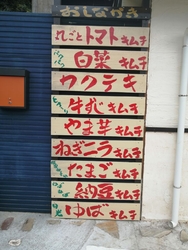 おしながき
丸ごとトマトキムチ
白菜キムチ
カクテキ
牛すじキムチ
やま芋キムチ
ねぎニラキムチ
たまごキムチ
納豆キムチ
ゆばキムチ